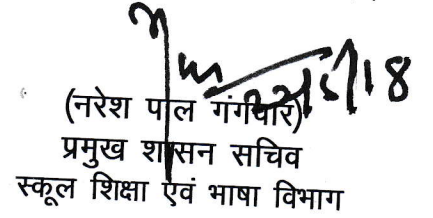 (नरेश पाल गंगवार)
प्रमुख शासन सचिव
स्कूल शिक्षा एवं भाषा विभाग